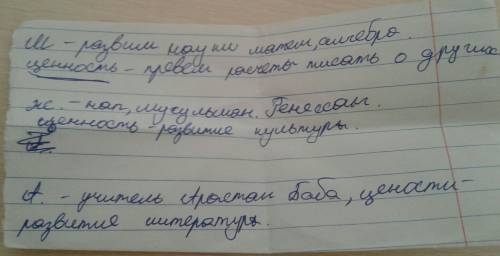 М - развил науки матем, алгебра.
ценность - превём расчеты писать о других
ж. - нап, мусульман. Ренессанс.
ценность - развитие культуры.
А. - учитель Арыстан Баба, цености -
развитие литературы.